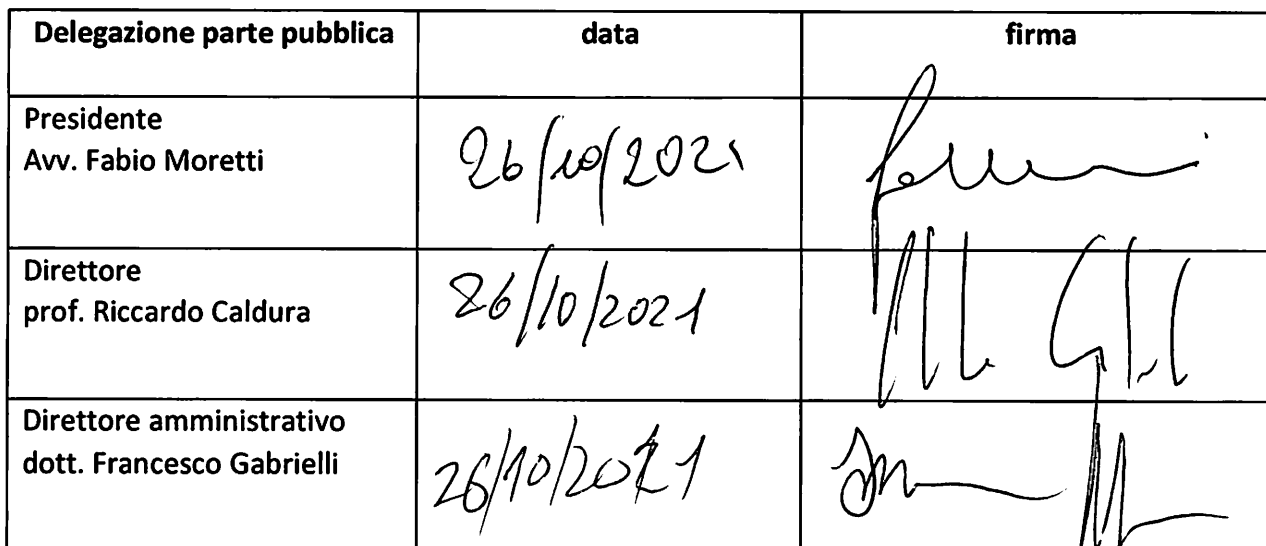 Delegazione parte pubblica data firma
Presidente
Avv. Fabio Moretti
26/10/2021
Direttore
prof. Riccardo Caldura
26/10/2021
Direttore amministrativo
dott. Francesco Gabrielli
26/10/2021